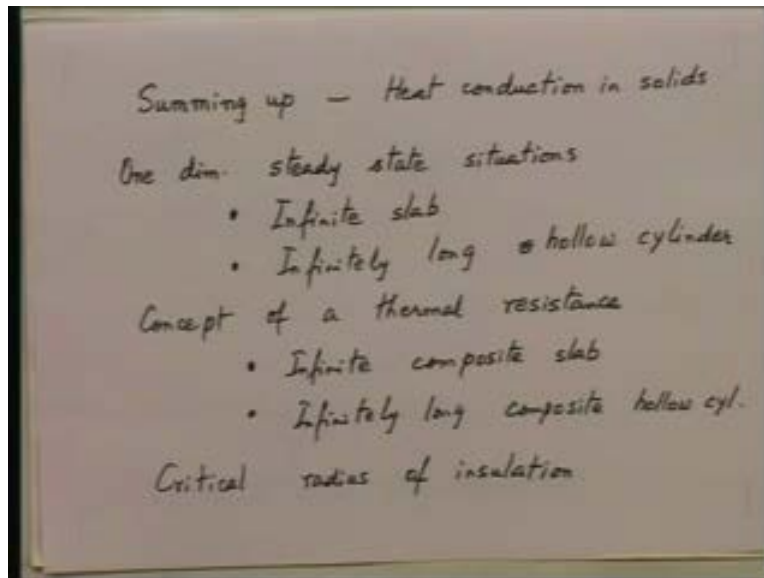 Summing up — Heat conduction in solids
One dim. steady state situations
• Infinite slab
• Infinitely long hollow cylinder
Concept of a thermal resistance
• Infinite composite slab
• Infinitely long composite hollow cyl.
Critical radius of insulation